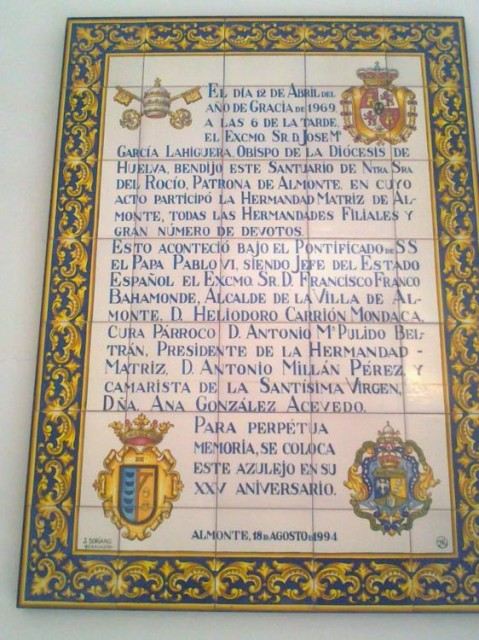 El día 12 de Abril del
año de Gracia de 1969,
a las 6 de la tarde,
el Excmo. Sr. D. Jose Mª
García Lahiguera, Obispo de la Diócesis de
Huelva, bendijo este Santuario de Ntra. Sra.
del Rocío, Patrona de Almonte, en cuyo
acto participó la Hermandad Matriz de Al-
monte, todas las Hermandades Filiales y
gran número de devotos.
Esto aconteció bajo el Pontificado de SS
el Papa Pablo VI, siendo Jefe del Estado
Español el Excmo. Sr. D. Francisco Franco
Bahamonde, Alcalde de la Villa de Al-
monte, D. Heliodoro Carrión Mondaca,
Cura Párroco D. Antonio Mª Pulido Bel-
trán, Presidente de la Hermandad
Matriz, D. Antonio Millán Pérez, y
Camarista de la Santísima Virgen,
Dña. Ana González Acevedo.
Para perpétua
memoria, se coloca
este azulejo en su
XXV aniversario.
Almonte, 18 de Agosto de 1994
J. Soriano